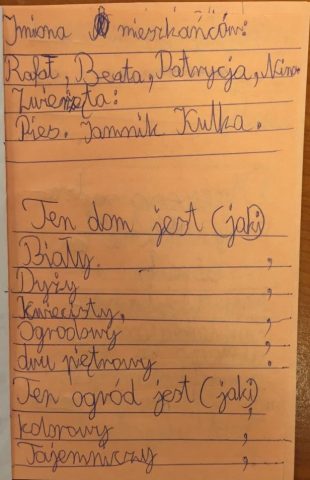 Imiona mieszkańców:
Rafał, Beata, Patrycja, Nina.
Zwierzęta:
Pies. Jamnik Kulka.
Ten dom jest (jaki)
Biały. ,
Dyży ,
kwiecisty, ,
Ogrodowy ,
dwu piętrowy .
Ten ogród jest (jaki)
kolorowy ,
Tajemniczy ,